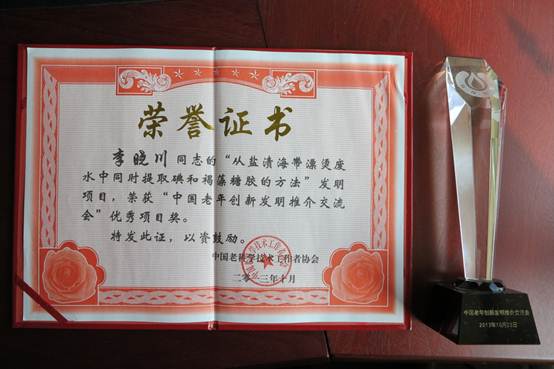 荣誉证书
李晓川同志的“从盐渍海带漂烫废
水中同时提取碘和褐藻糖胶的方法”发明
项目，荣获“中国老年创新发明推介交流
会”优秀项目奖。
特发此证，以资鼓励。
中国老科学技术工作者协会
二〇一三年十月
中国老年创新发明推介交流会
2013年10月23日